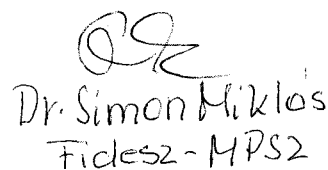 Dr. Simon Miklós
Fidesz-MPSZ